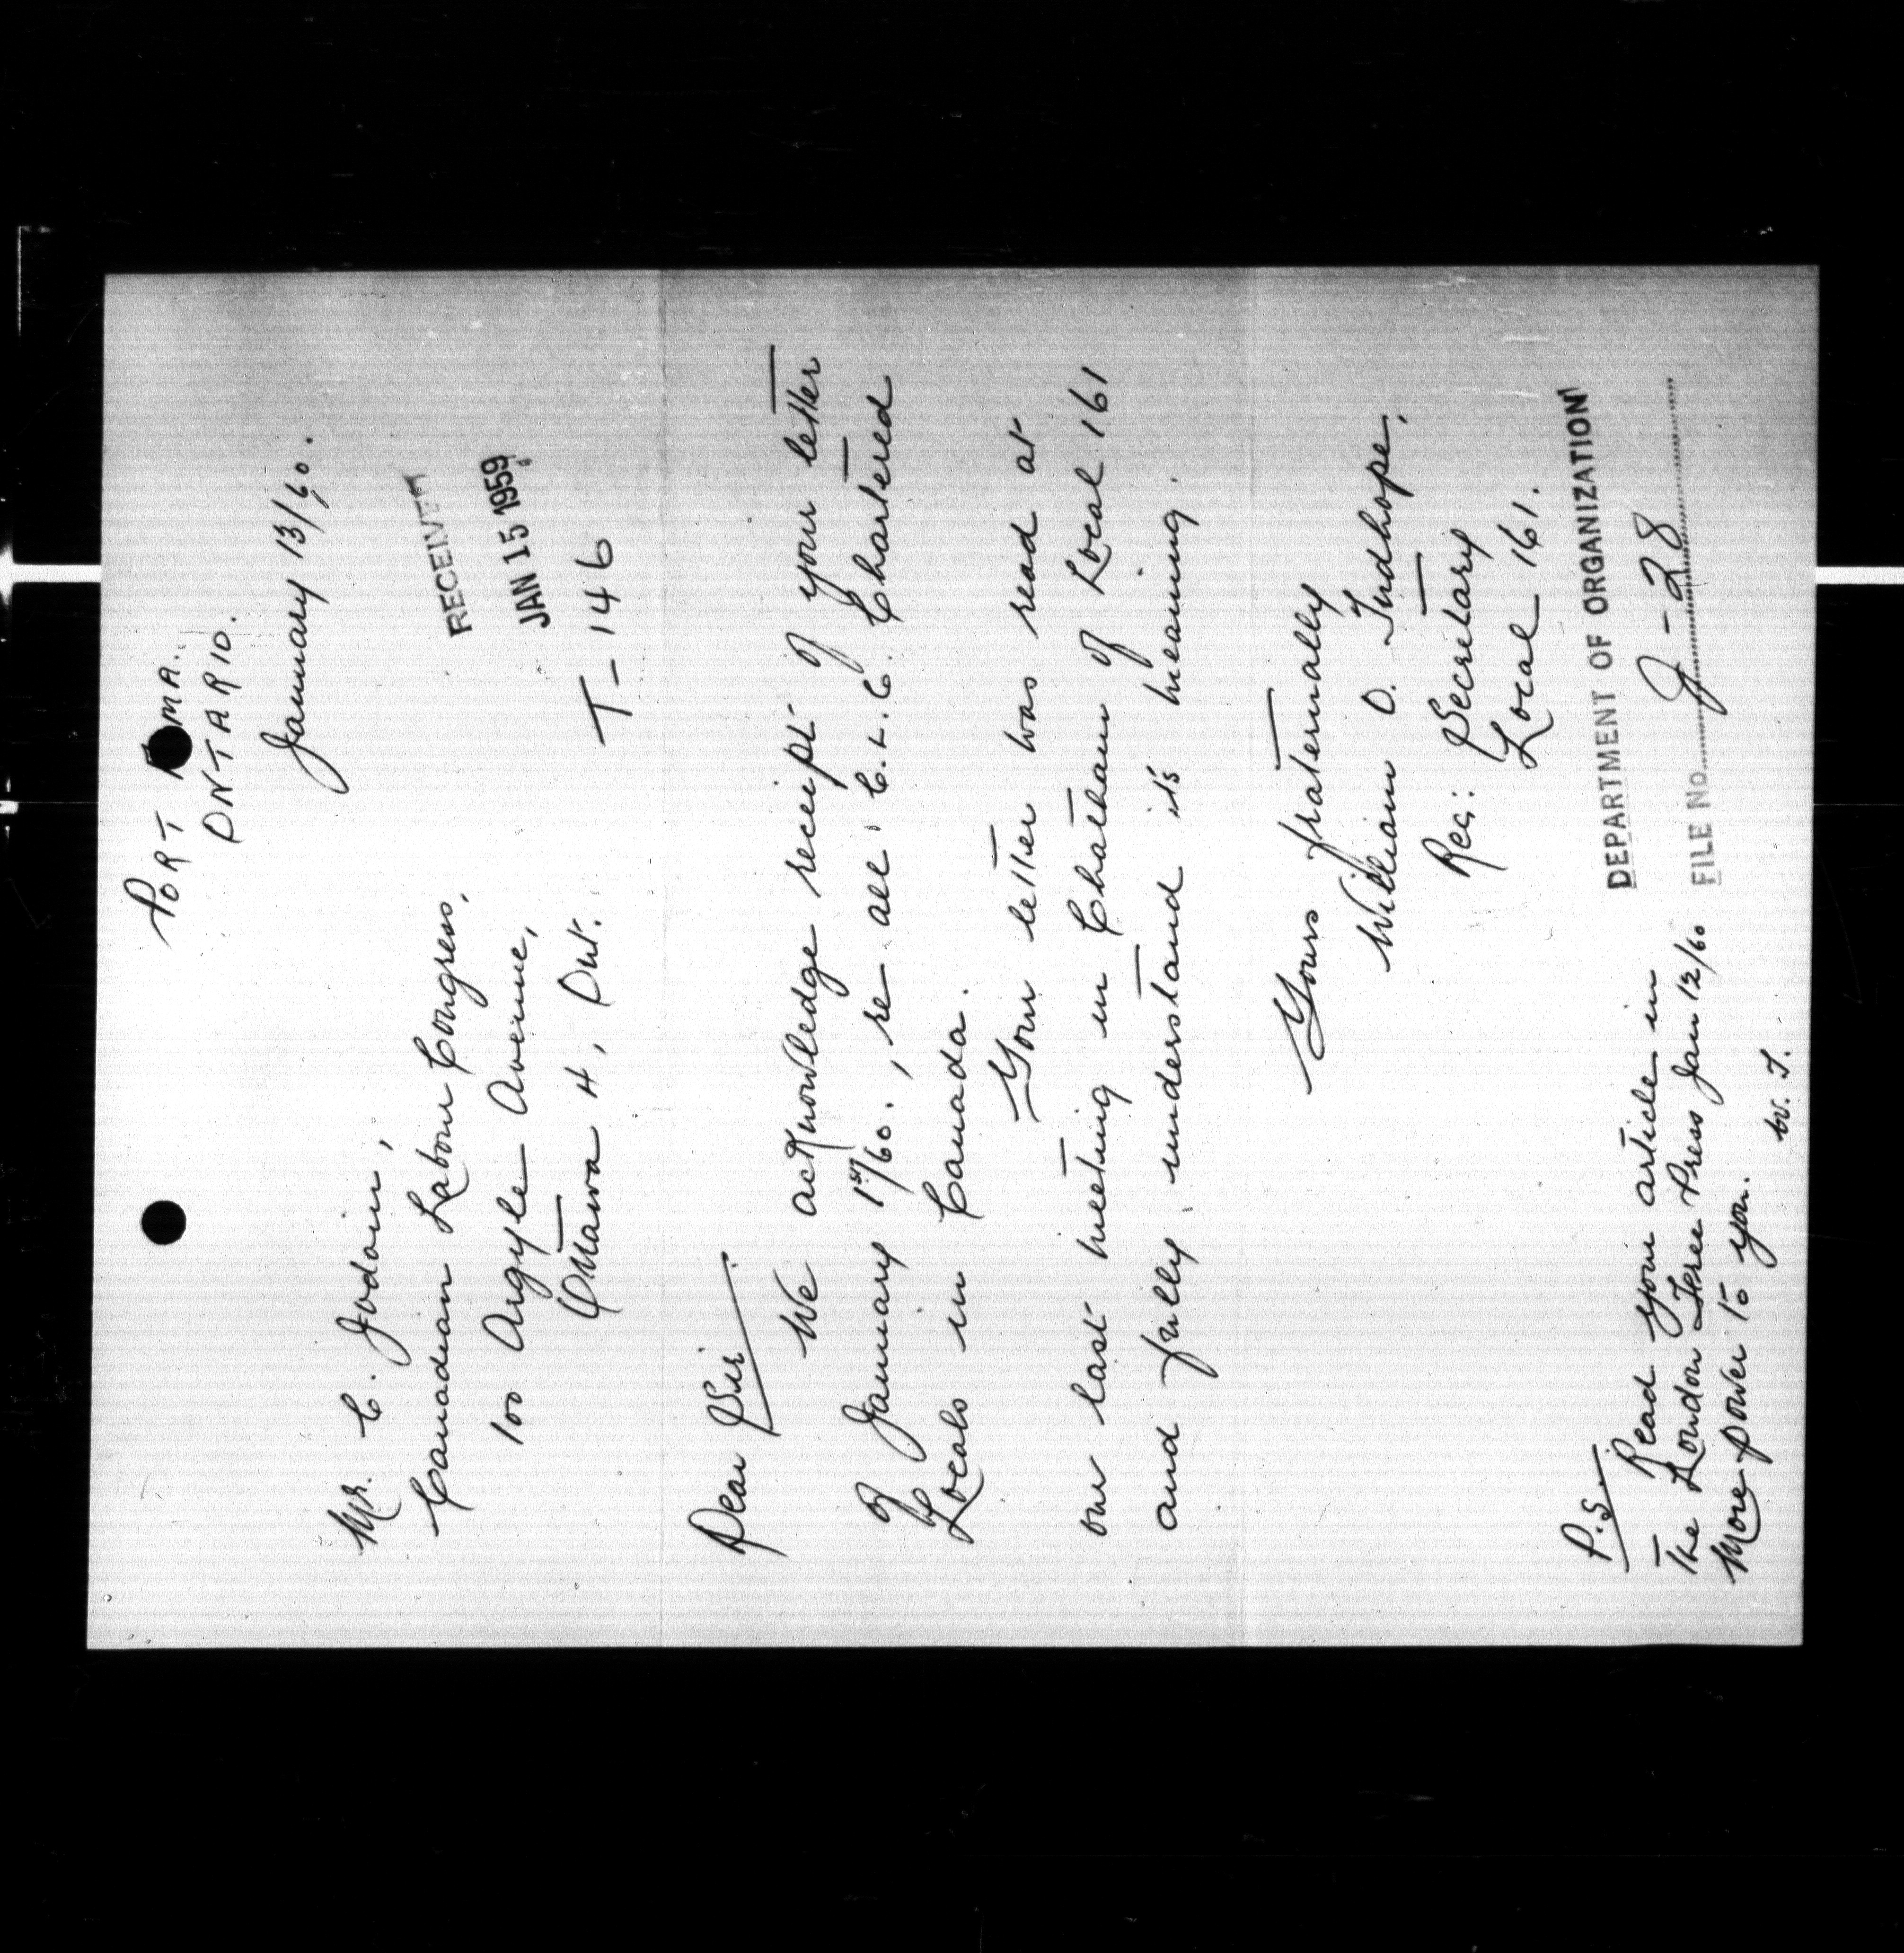 PORT MA.
ONTARIO.
January 13/60.
Mr. C. Jodoin,
Canadian Labour Congress,
100 Argyle Avenue,
Ottawa 4, Ont.
RECEIVED
JAN 15 1959
T-146
Dear Sir
We acknowledge receipt of your letter
of January 1st/60., re all C.L.C. Chartered
Locals in Canada.
Your letter was read at
our last meeting in Chatham of Local 161
and fully understand it's meaning.
Yours fraternally
William O. Tudhope,
Rec: Secretary
Local 161.
DEPARTMENT OF ORGANIZATION
FILE No. J-28
P.S. Read your article in
The London Free Press Jan 12/60
More power to you.
W. T.